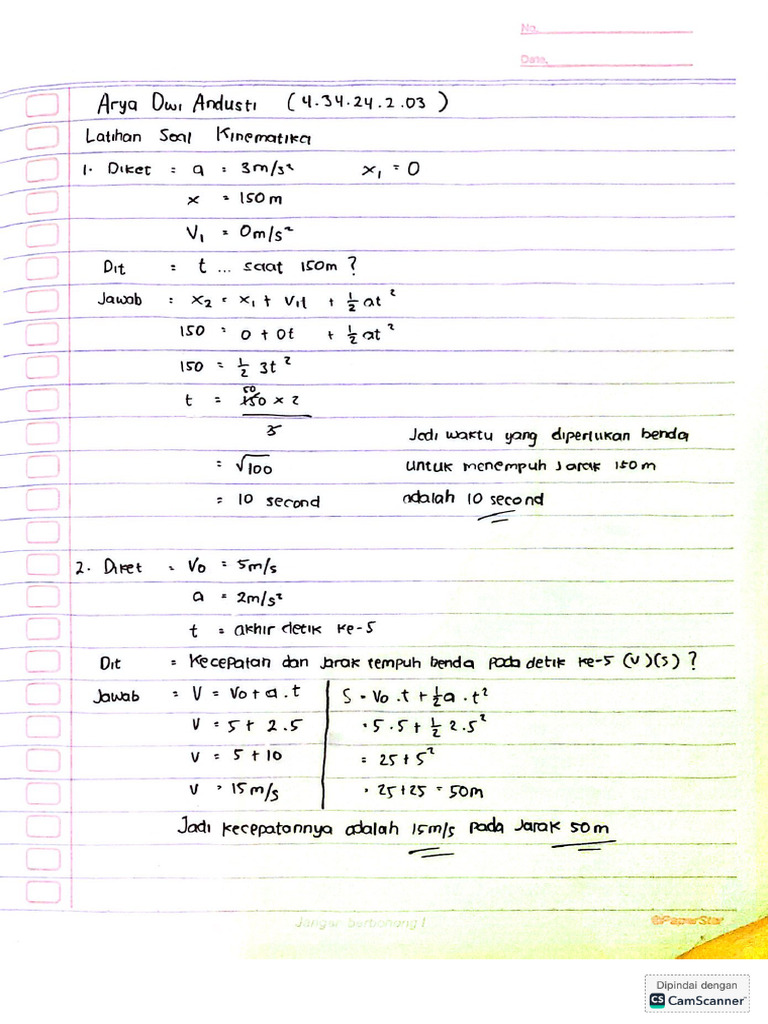 No.
Date.
Arya Dwi Andusti (4.34.24.2.03)
Latihan Soal Kinematika
1. Diket = a = 3m/s² x₁ = 0
x = 150m
V₁ = 0m/s²
Dit = t ... saat 150m ?
Jawab = x₂ = x₁ + V₁t + ½ at²
150 = 0 + 0t + ½ at²
150 = ½ 3t²
50
t = 150 × 2
3
Jadi waktu yang diperlukan benda
= √100 untuk menempuh Jarak 150m
= 10 second adalah 10 second
2. Diket = Vo = 5m/s
a = 2m/s²
t = akhir detik ke-5
Dit = Kecepatan dan Jarak tempuh benda pada detik ke-5 (v)(s) ?
Jawab = V = Vo + a . t | S = Vo . t + ½ a . t²
V = 5 + 2 . 5 = 5 . 5 + ½ 2 . 5²
V = 5 + 10 = 25 + 5²
V = 15m/s = 25 + 25 = 50m
Jadi kecepatannya adalah 15m/s pada Jarak 50m
Jangan berbohong!
PaperStar
Dipindai dengan
CS CamScanner